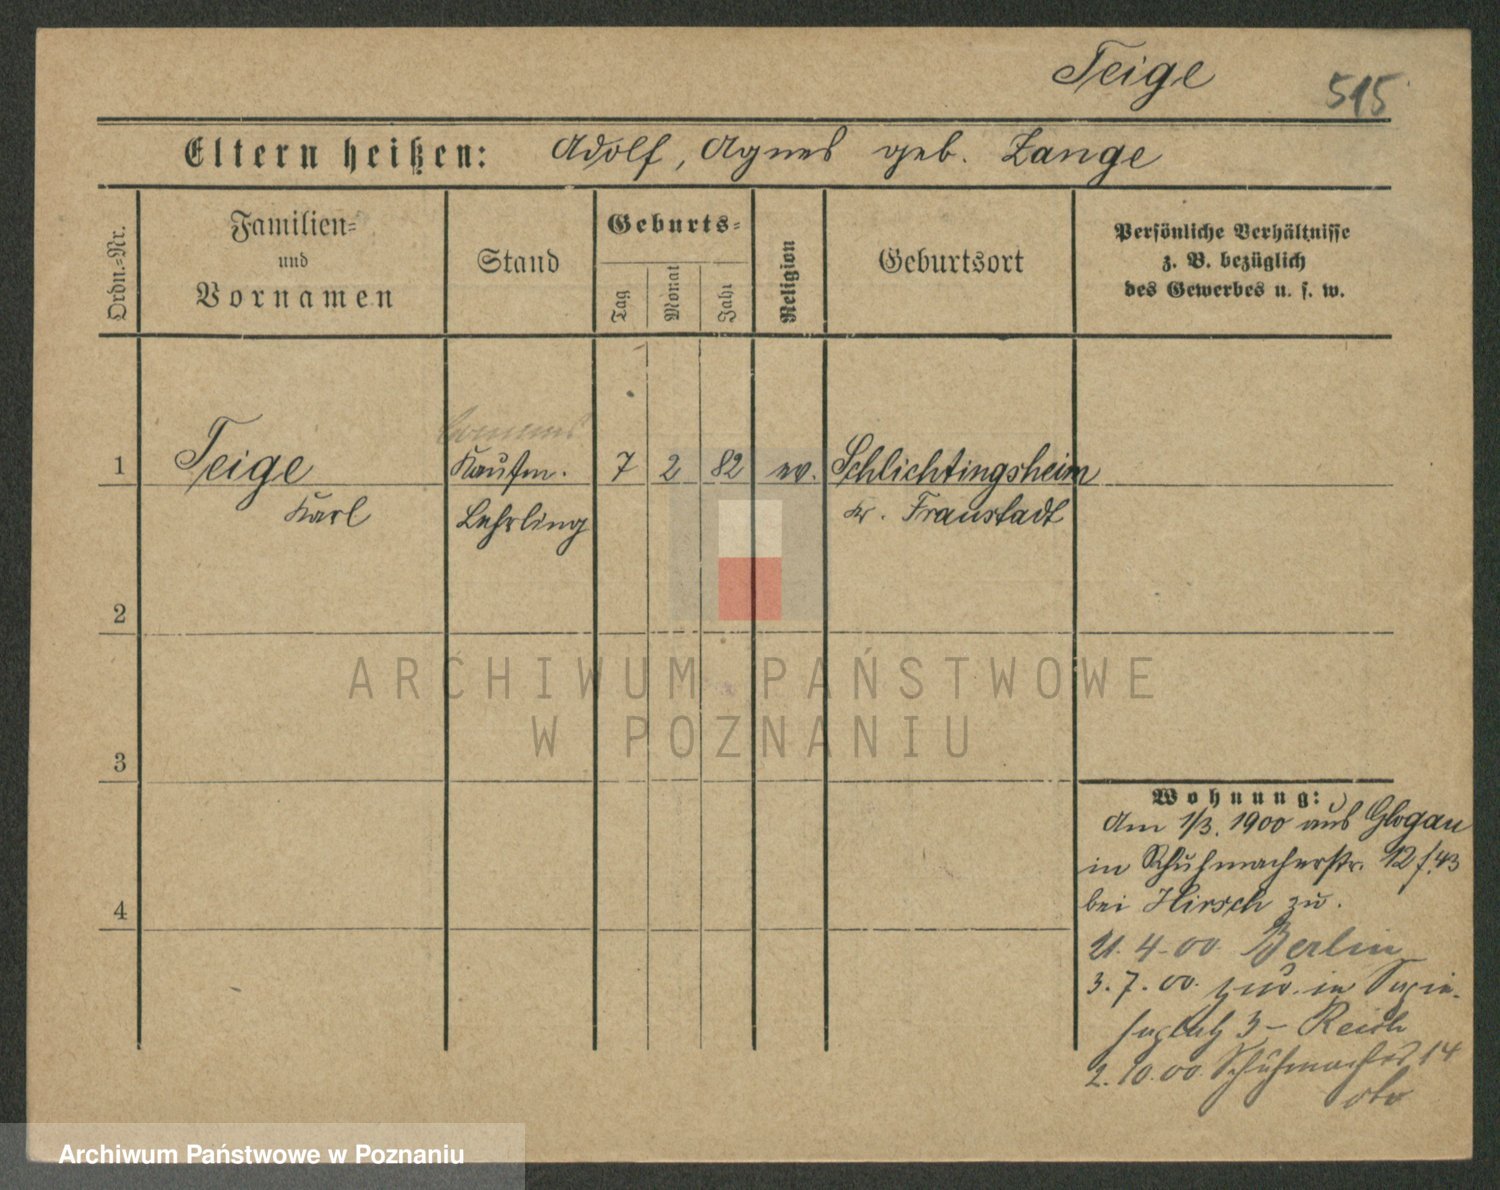 Teige
515
Eltern heißen: Adolf, Agnes geb. Lange
Ordn.-Nr.
Familien-
und
Vornamen
Stand
Geburts-
Tag
Monat
Jahr
Religion
Geburtsort
Persönliche Verhältnisse
z. B. bezüglich
des Gewerbes u. s. w.
1 Teige Kaufm. 7 2 82 ev. Schlichtingsheim
Karl Lehrling Kr. Fraustadt
2
ARCHIWUM PAŃSTWOWE
W POZNANIU
3
Wohnung:
Am 1/3. 1900 aus Glogau
in Schuhmacherstr. 12 f. 43
bei Hirsch zu.
4
21. 4-00 Berlin
3. 7. 00. in
3 - Reich
2. 10. 00. Schuhmacherst 14
Archiwum Państwowe w Poznaniu